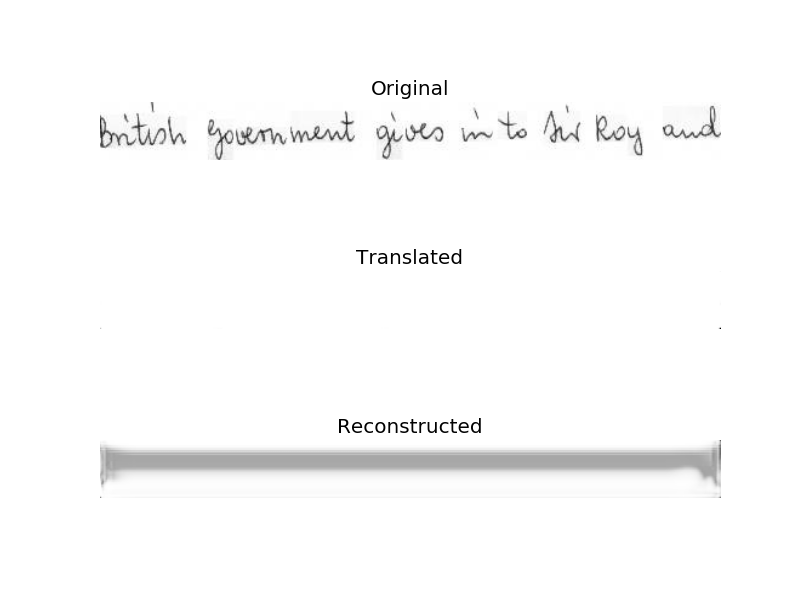 Original
British government gives in to Sir Roy and
Translated
Reconstructed